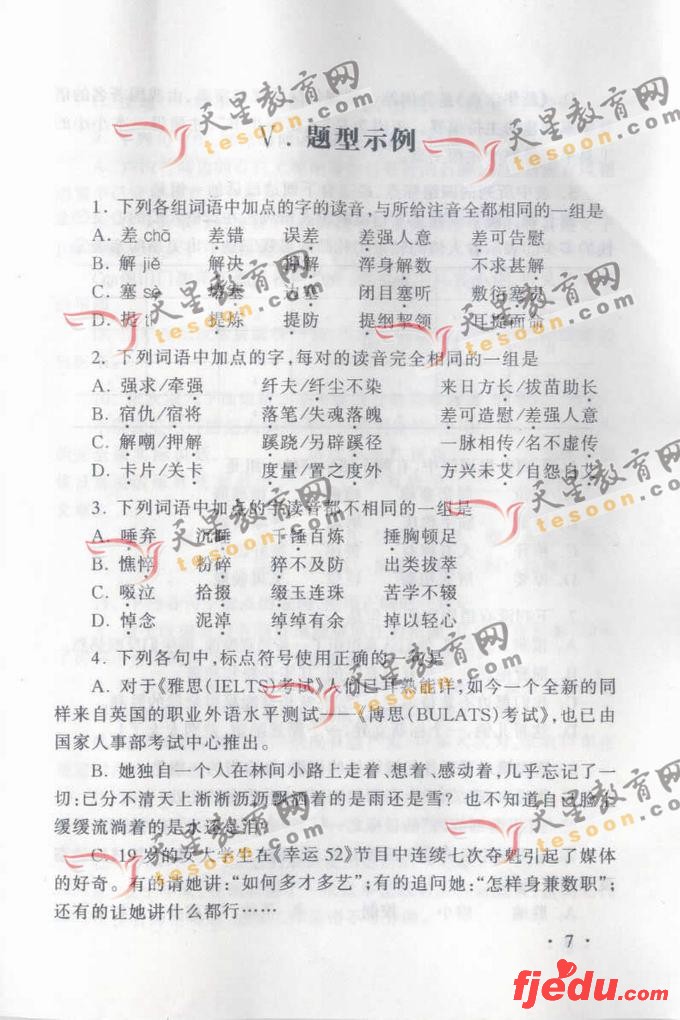 Ⅴ．题型示例
1．下列各组词语中加点的字的读音,与所给注音全都相同的一组是
A．差 chā 差错 误差 差强人意 差可告慰
B．解 jiě 解决 押解 浑身解数 不求甚解
C．塞 sè 堵塞 边塞 闭目塞听 敷衍塞责
D．提 tí 提炼 提防 提纲挈领 耳提面命
2．下列词语中加点的字,每对的读音完全相同的一组是
A．强求/牵强 纤夫/纤尘不染 来日方长/拔苗助长
B．宿仇/宿将 落笔/失魂落魄 差可造慰/差强人意
C．解嘲/押解 蹊跷/另辟蹊径 一脉相传/名不虚传
D．卡片/关卡 度量/置之度外 方兴未艾/自怨自艾
3．下列词语中加点的字读音都不相同的一组是
A．唾弃 沉睡 千锤百炼 捶胸顿足
B．憔悴 粉碎 猝不及防 出类拔萃
C．啜泣 拾掇 缀玉连珠 苦学不辍
D．悼念 泥淖 绰绰有余 掉以轻心
4．下列各句中,标点符号使用正确的一项是
A．对于《雅思(IELTS)考试》人们已耳熟能详,如今一个全新的同
样来自英国的职业外语水平测试——《博思(BULATS)考试》,也已由
国家人事部考试中心推出。
B．她独自一个人在林间小路上走着、想着、感动着,几乎忘记了一
切:已分不清天上淅淅沥沥飘洒着的是雨还是雪？也不知道自己脸上
缓缓流淌着的是水还是泪？
C．19 岁的女大学生在《幸运 52》节目中连续七次夺魁引起了媒体
的好奇。有的请她讲:“如何多才多艺”;有的追问她:“怎样身兼数职”;
还有的让她讲什么都行……
·7·
天星教育网
tesoon.com
fjedu.com